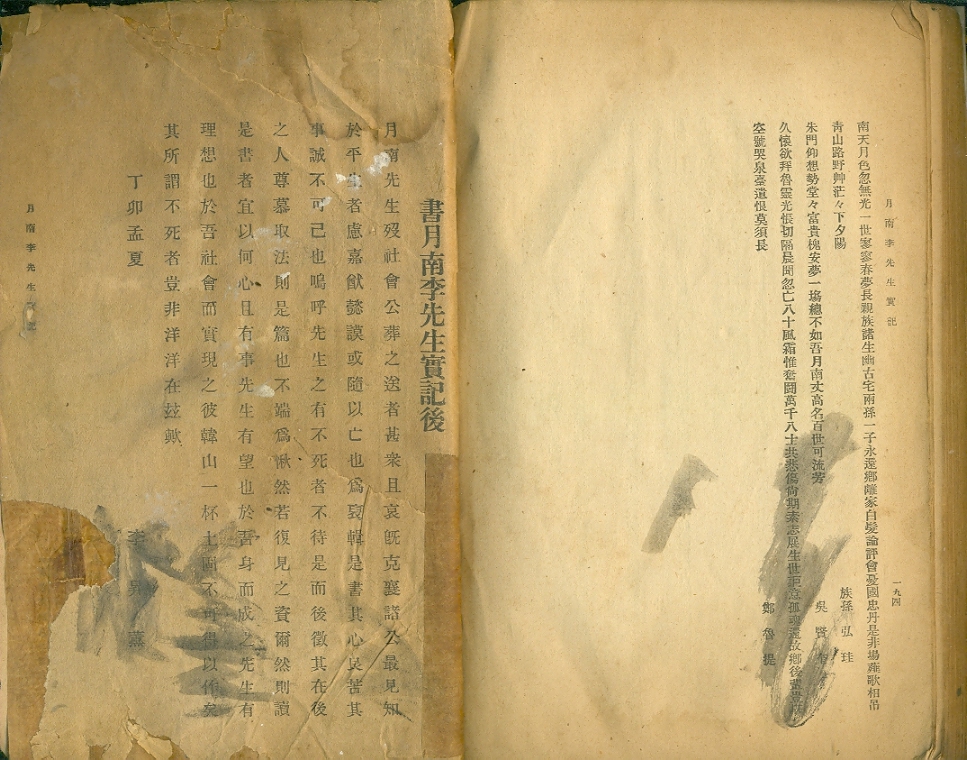 月南李先生實記
一九四
南天月色忽無光一世寥寥春夢長親族諸生幽古宅兩孫一子永還鄉離家白髮論評會憂國忠丹是非場薤歌相吊
靑山路野艸茫々下夕陽
族孫 弘珪
朱門仰想勢堂々富貴槐安夢一塲總不如吾月南丈高名百世可流芳
吳賢
久懷欲拜魯靈光悵切隔晨聞忽亡八十風霜惟奮鬪萬千人士共悲傷尙期素志展生世
孤魂還故鄕後
空號哭泉臺遺恨莫須長
鄭魯湜
書月南李先生實記後
月南先生歿社會公葬之送者甚衆且哀旣克襄諸公最見知
於平生者慮嘉猷懿謨或隨以亡也爲裒輯是書其心良苦其
事誠不可已也嗚呼先生之有不死者不待是而後徵其在後
之人尊慕取法則是篇也不啻爲愀然若復見之資爾然則讀
是書者宜以何心且有事先生有望也於吾身而成之先生有
理想也於吾社會而實現之彼韓山一杯土固不可得以作矣
其所謂不死者豈非洋洋在玆歟
丁卯孟夏
李昇薰
月南李先生實記